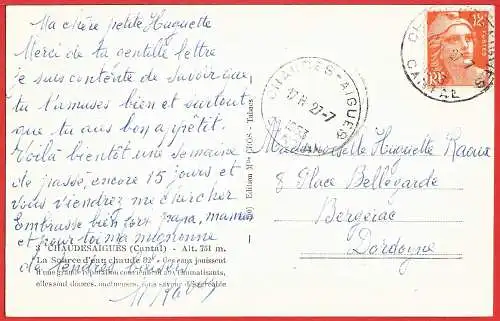 Ma chère petite Huguette
Merci de ta gentille lettre
je suis contente de savoir que
tu t'amuses bien et surtout
que tu aies bon appétit.
Voilà bientôt une semaine
de passé, encore 15 jours et
vous viendrez me chercher
Embrasse bien fort papa, maman
et pour toi ma mignonne
de tendres baisers
3 CHAUDESAIGUES (Cantal) - Alt. 731 m.
La Source d'eau chaude 82° - Ces eaux jouissent
d'une grande réputation conviennent aux rhumatisants,
elles sont douces, onctueuses, sans saveur désagréable
Edition Mlle GROS - Tabacs
CHAUDES-AIGUES
17 H 27-7
1953
CANTAL
12F
POSTES
RF
CANTAL
Mademoiselle Huguette Raoux
8 Place Bellegarde
Bergerac
Dordogne